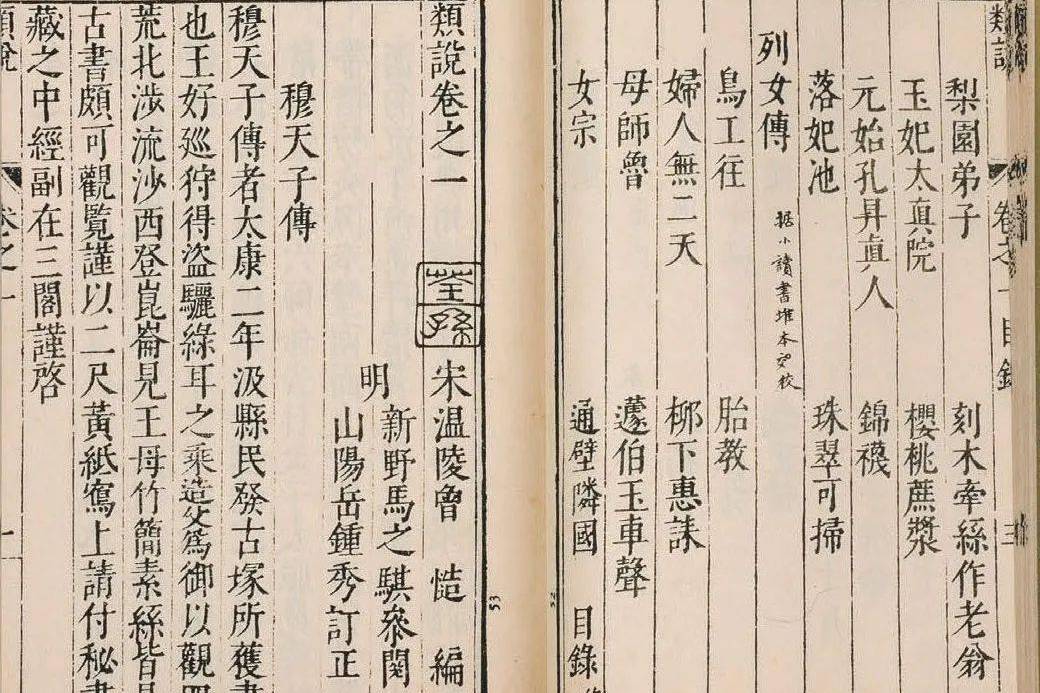 類說 卷之一目錄 三
梨園弟子 刻木牽絲作老翁
玉妃太真院 櫻桃蔗漿
元始孔昇真人 錦襪
落妃池 珠翠可掃
列女傳 據小讀書堆本
鳥工往 胎教
婦人無二天 柳下惠誄
母師魯 蘧伯玉車聲
女宗 通壁隣國 目錄
52
53
類說卷之一
宋溫陵魯 慥 編
明 新野馬之騏參閱
山陽岳鍾秀訂正
穆天子傳
穆天子傳者太康二年汲縣民發古塚所獲書
也王好巡狩得盜驪綠耳之乘造父為御以觀四
荒北渉流沙西登崑崙見王母竹簡素絲皆
古書頗可觀覧謹以二尺黃紙寫上請付秘書
藏之中經副在三閣謹啓
類說 卷之一 一